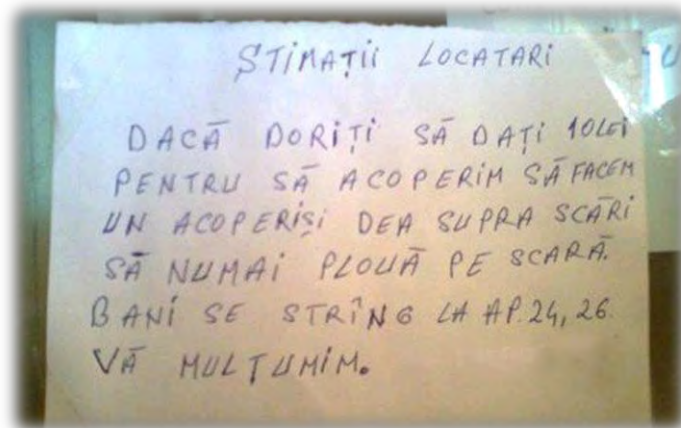 STIMAȚII LOCATARI
DACĂ DORIȚI SĂ DAȚI 10LEI
PENTRU SĂ ACOPERIM SĂ FACEM
UN ACOPERIȘI DEA SUPRA SCĂRI
SĂ NUMAI PLOUĂ PE SCARĂ.
BANI SE STRÎNG LA AP.24,26.
VĂ MULȚUMIM.